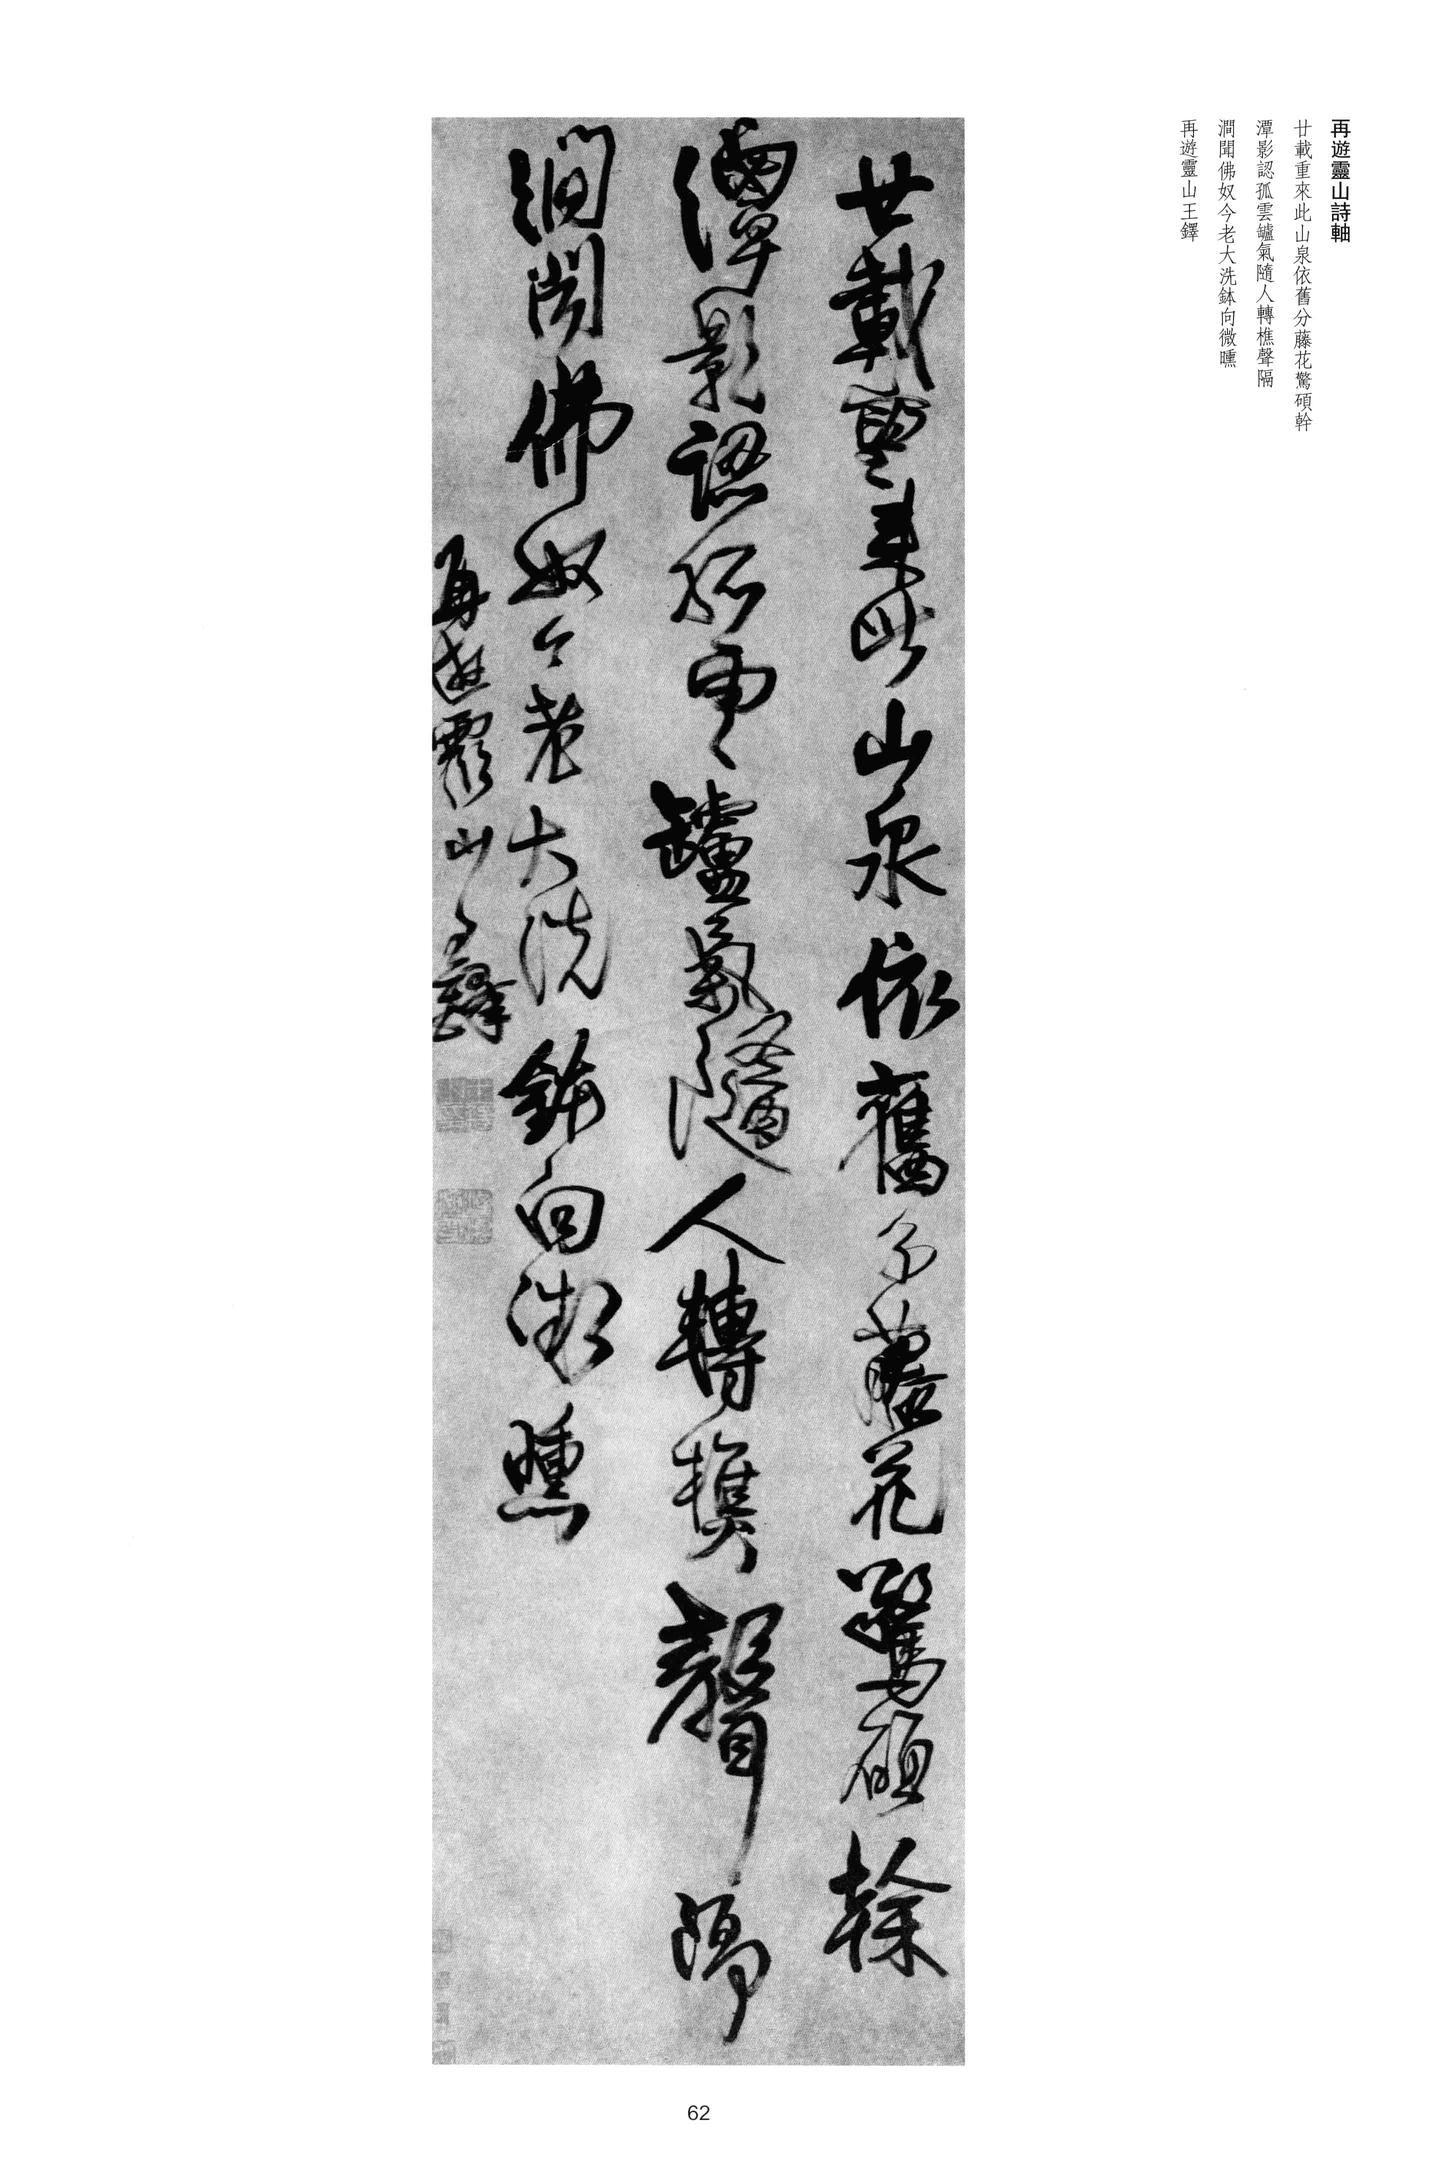 再遊靈山詩軸
廿載重來此山泉依舊分藤花驚碩幹
潭影認孤雲罏氣隨人轉樵聲隔
澗聞佛奴今老大洗鉢向微曛
再遊靈山王鐸
廿載重來此山泉依舊分藤花驚碩幹
潭影認孤雲罏氣隨人轉樵聲隔
澗聞佛奴今老大洗鉢向微曛
再遊靈山王鐸
62